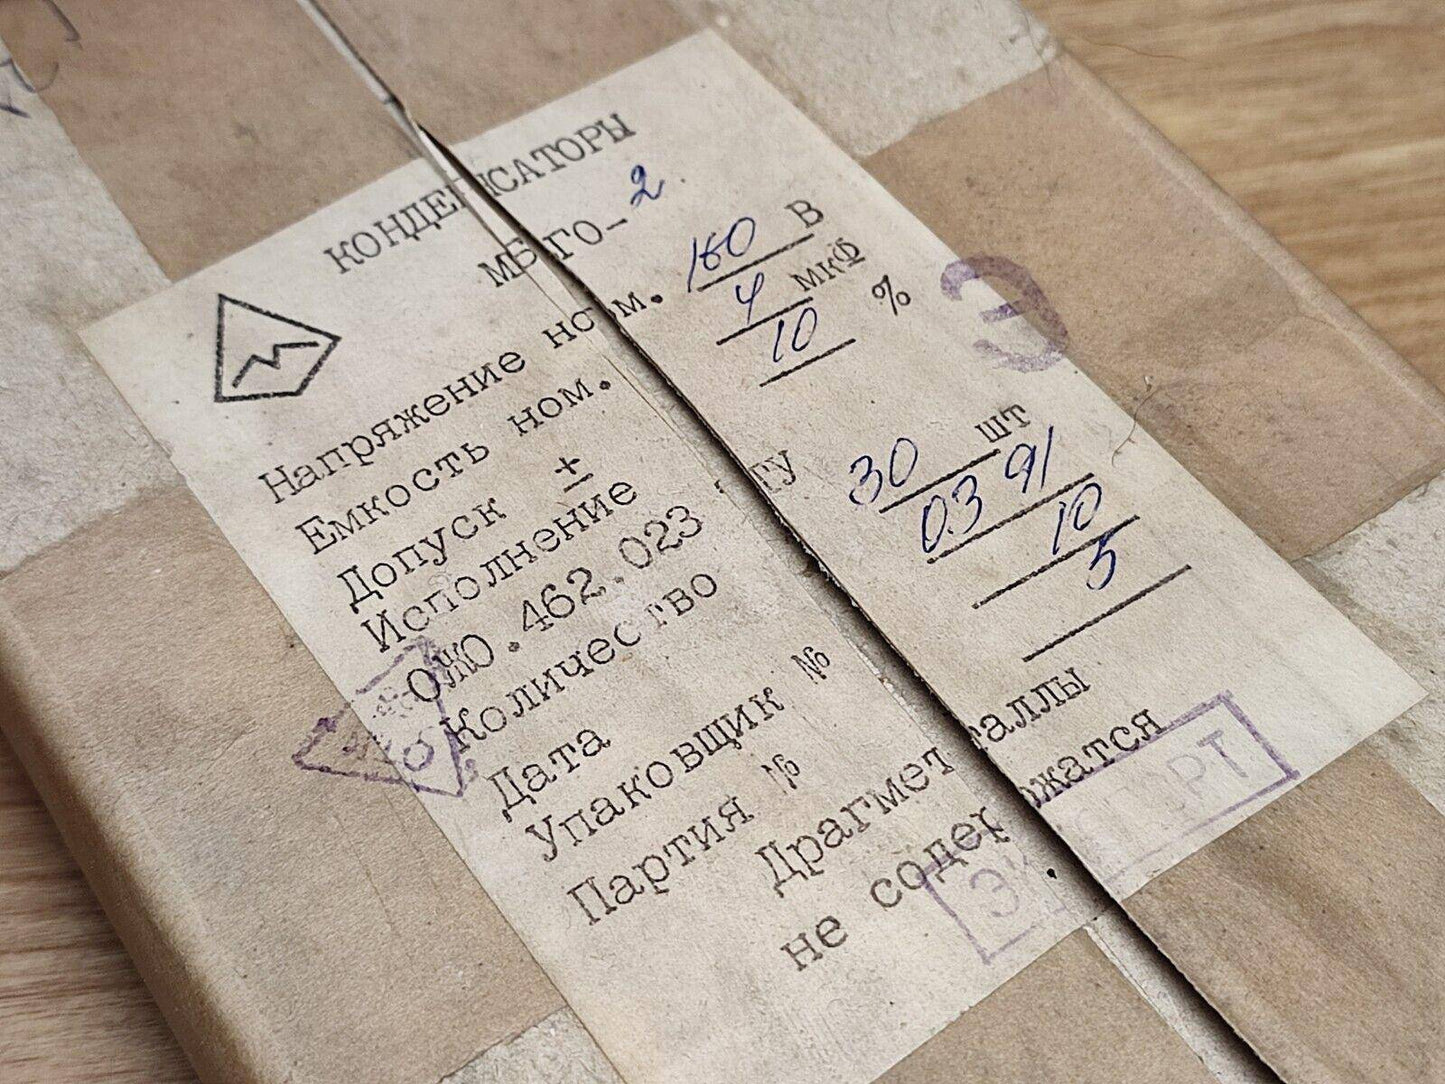 КОНДЕНСАТОРЫ
МБГО-2
Напряжение ном. 160 В
Емкость ном. 4 мкФ
Допуск ± 10 %
Исполнение
ОЖО.462.023 ТУ
Количество 30 шт
Дата 03 91
Упаковщик № 10
Партия № 5
Драгметаллы
не содержатся
Э
ЭКСПОРТ